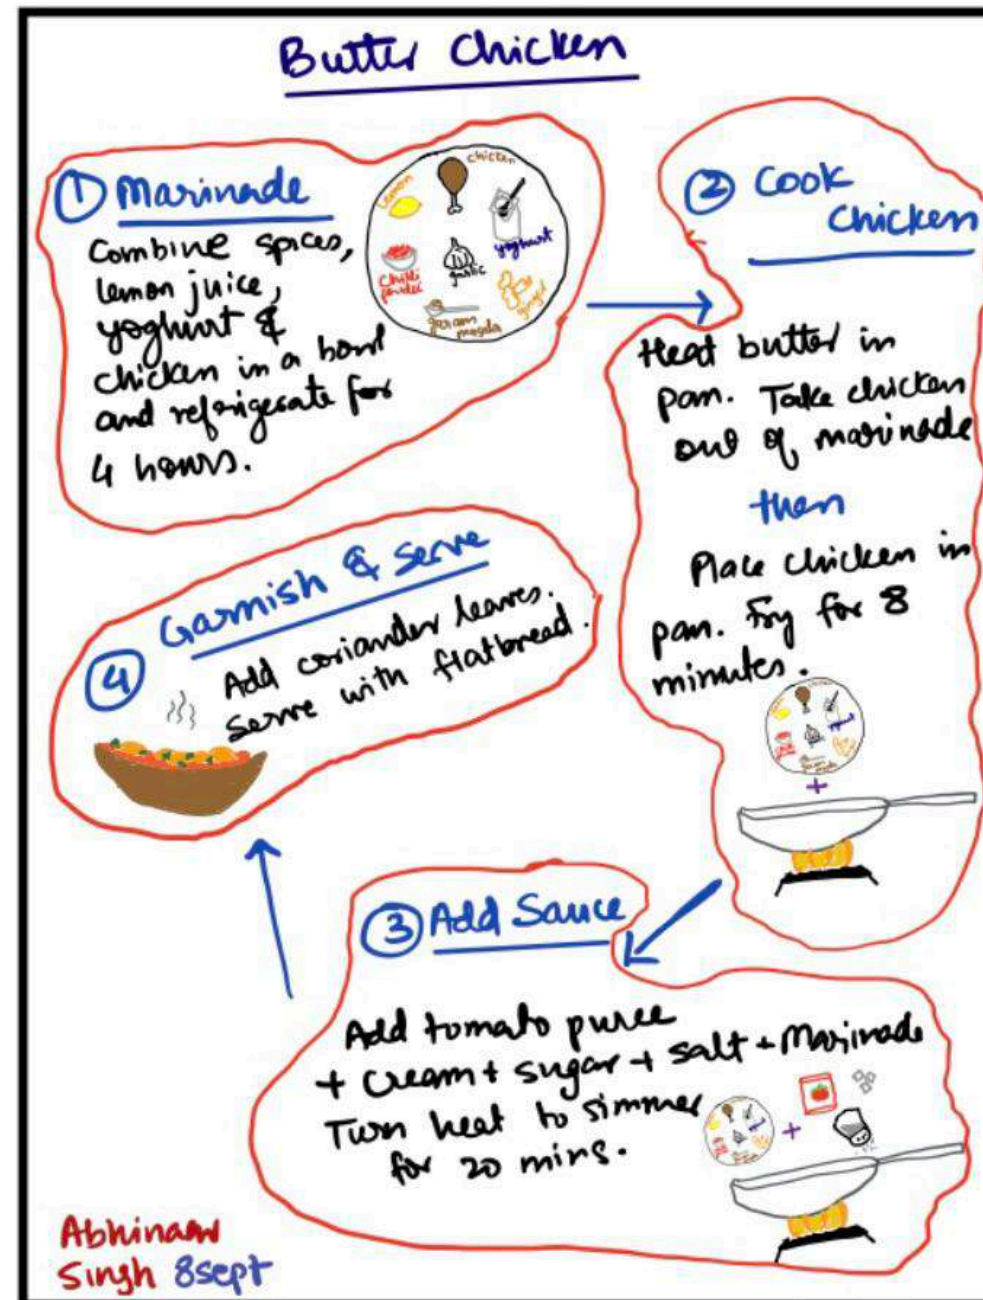 Butter Chicken
① Marinade
Combine spices,
lemon juice,
yoghurt &
chicken in a bowl
and refrigerate for
4 hours.
chicken
Lemon
yoghurt
Chilli
powder
garlic
ginger
garam
masala
② Cook
Chicken
Heat butter in
pan. Take chicken
out of marinade
then
Place chicken in
pan. Fry for 8
minutes.
+
③ Add Sauce
Add tomato puree
+ Cream + sugar + salt + Marinade
Turn heat to simmer
for 20 mins.
+
④ Garnish & Serve
Add coriander leaves.
Serve with flatbread.
Abhinav
Singh 8 sept